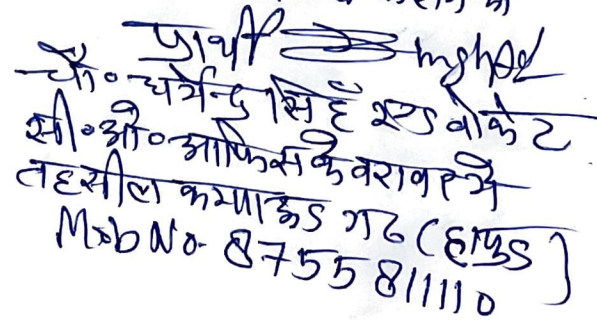 प्रार्थी
चौ० धर्मेन्द्र सिहँ एडवोकेट
सी०ओ० आफिस के वरावर मे
तहसील कम्पाऊड गढ (हापुड)
Mob No. 8755811110